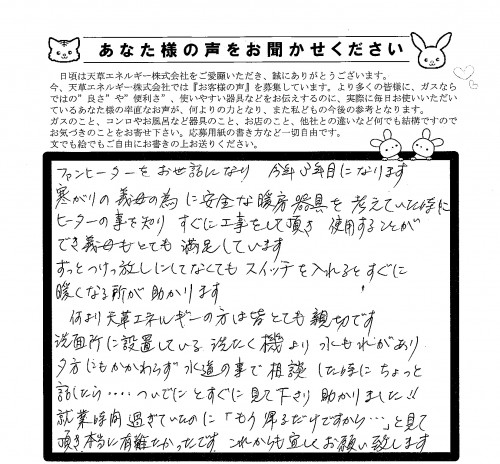 あなた様の声をお聞かせください
日頃は天草エネルギー株式会社をご愛顧いただき、誠にありがとうございます。
今、天草エネルギー株式会社では『お客様の声』を募集しています。より多くの皆様に、ガスなら
ではの"良さ"や"便利さ"、使いやすい器具などをお伝えするのに、実際に毎日お使いいただい
ているあなた様の率直なお声が、何よりの力となり、また私どもの今後の参考となります。
ガスのこと、コンロやお風呂など器具のこと、お店のこと、他社との違いなど何でも結構ですので
お気づきのことをお寄せ下さい。応募用紙の書き方など一切自由です。
文でも絵でもご自由にお書きの上お送りください。
ファンヒーターをお世話になり 今年3年目になります
寒がりの義母の為に安全な暖房器具を考えていた時に
ヒーターの事を知り すぐに工事をして頂き 使用することが
でき義母もとても満足しています
ずっとつけっ放しにしてなくてもスイッチを入れるとすぐに
暖くなる所が助かります
何より天草エネルギーの方は皆とても親切です
洗面所に設置している洗たく機より水もれがあり
夕方にもかかわらず水道の事で相談した時にちょっと
話したら・・・・ついでにとすぐに見て下さり助かりました!!
就業時間過ぎていたのに「もう帰るだけですから・・・」と見て
頂き本当に有難たかったです これからも宜しくお願い致します